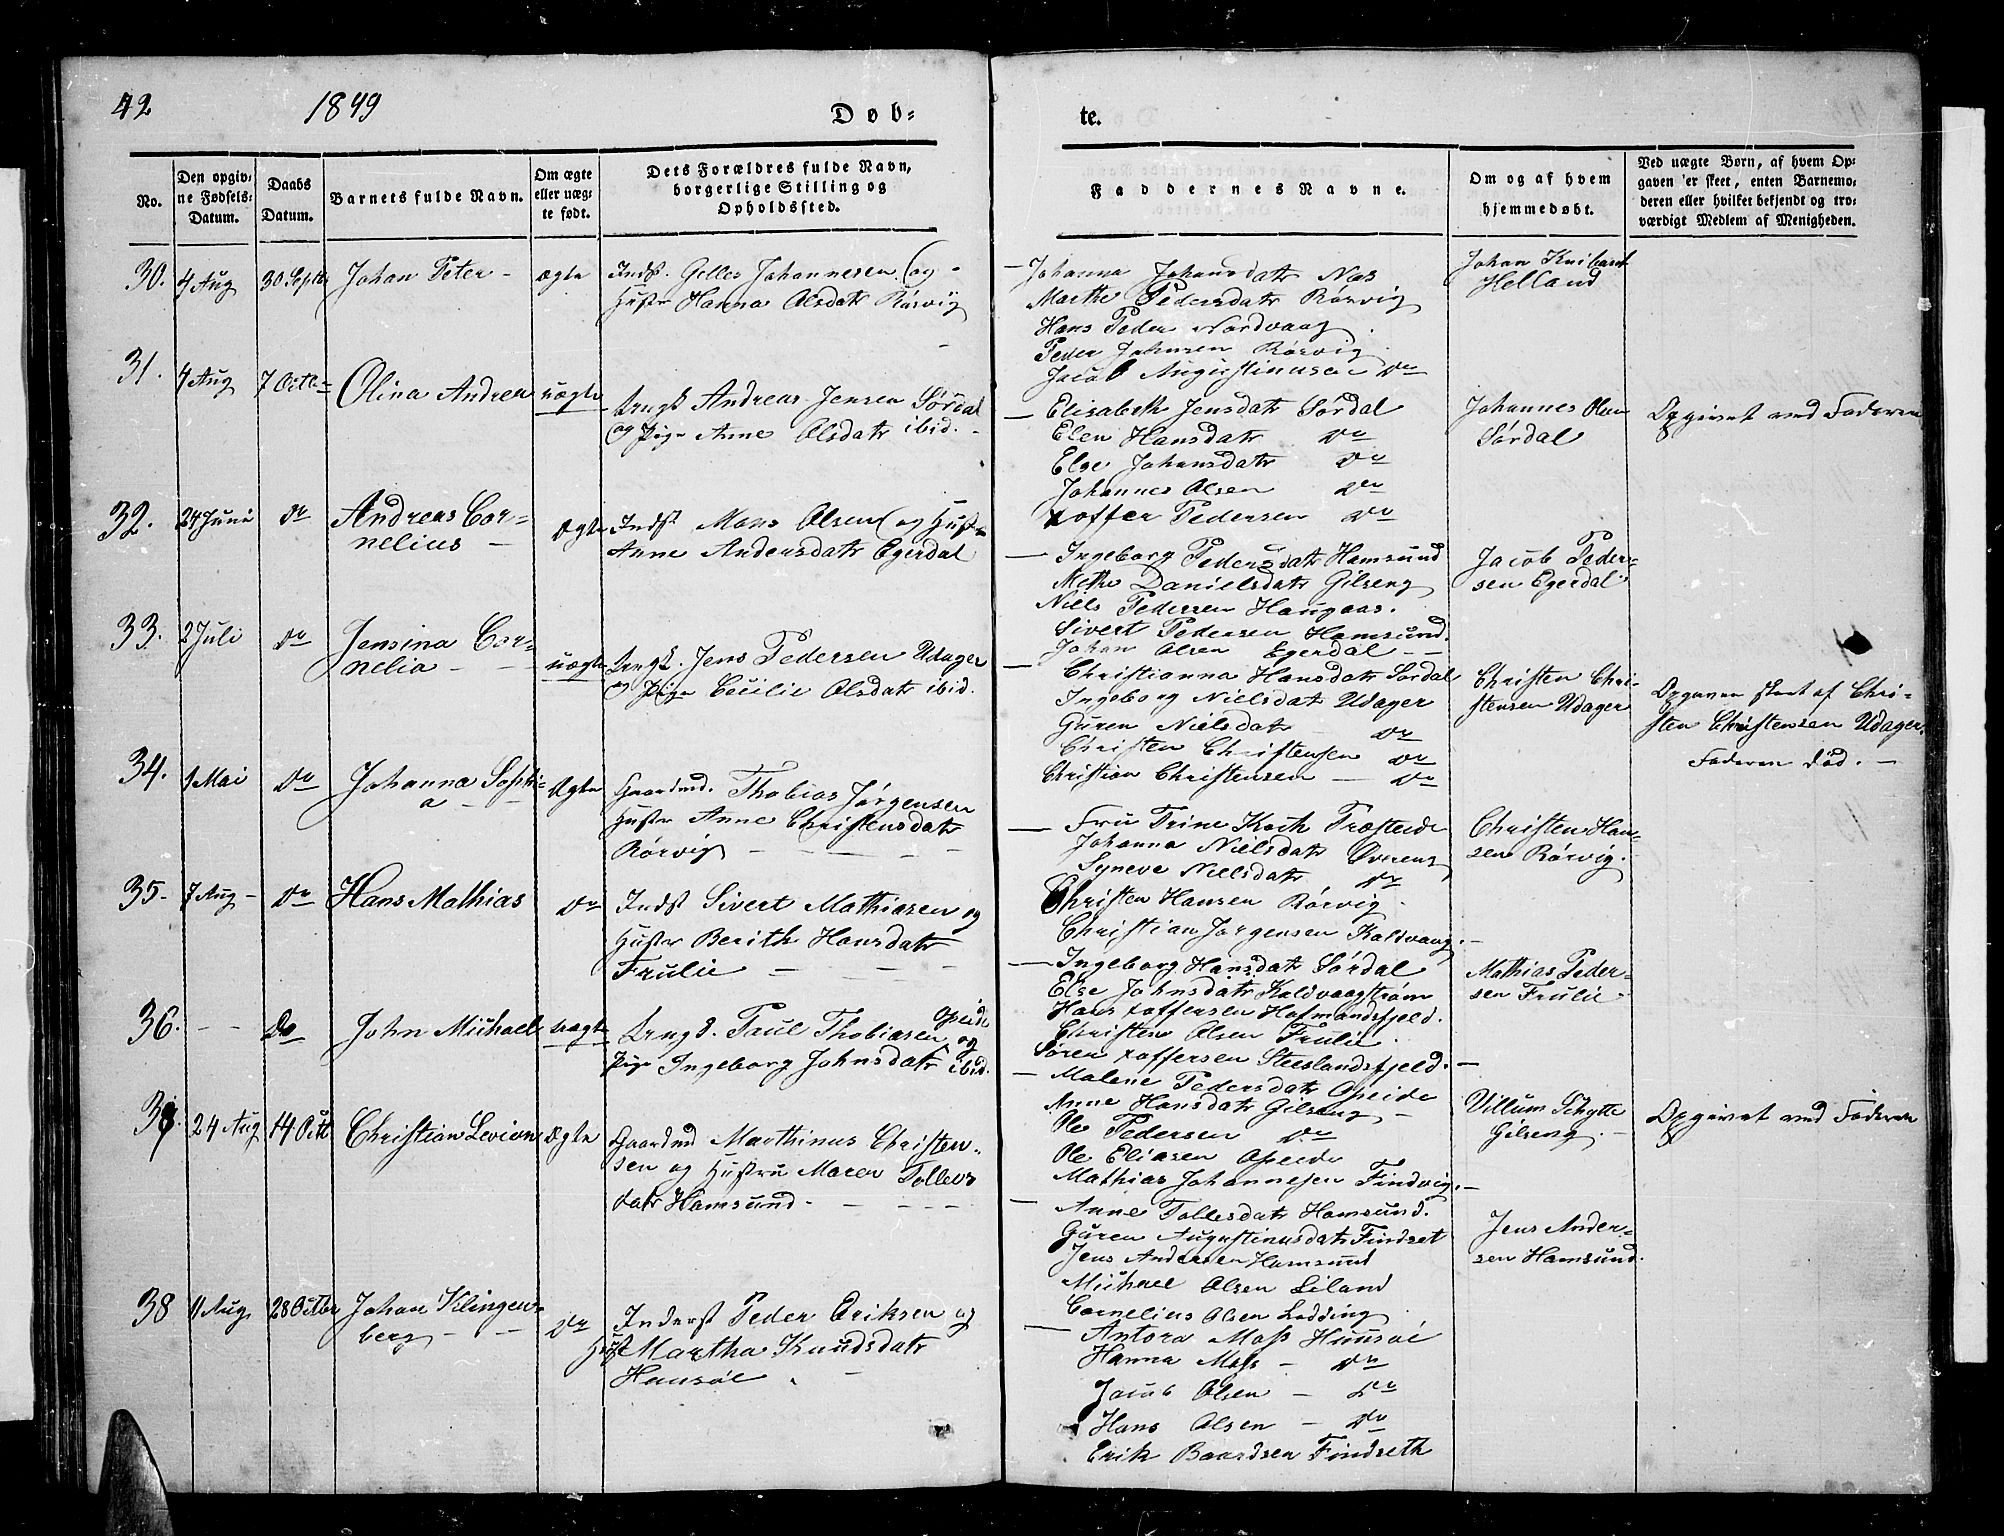 42
1849
Døb-
te.
No.
Den opgiv-
ne Fødsels-
Datum.
Daabs
Datum.
Barnets fulde Navn.
Om ægte
eller uæg-
te født.
Dets Forældres fulde Navn,
borgerlige Stilling og
Opholdssted.
Faddernes Navne.
Om og af hvem
hjemmedøbt.
Ved uægte Børn, af hvem Op-
gaven er skeet, enten Barnemo-
deren eller hvilket bekjendt og tro-
værdigt Medlem af Menigheden.
30. 4 Aug 30 Septbr Johan Peter - ægte
Inds. Johannesen og -
Hustr Hanna Olsdatr Rørvig
Johanna Johansdatr Næs
Marthe Pedersdatr Rørvig
Hans Peder Nordvaag
Peder Johnsen Rørvig
Jacob Augustinusen do
Johan
Helland
31. 4 Aug 7 Octbr Olina Andrea uægte
Drngk Andreas Jensen Sørdal
og Pige Anne Olsdatr ibid. -
Elisabeth Jensdatr Sørdal
Elen Hansdatr do
Else Johansdatr do
Johannes Olsen do
Xoffer Pedersen do
Johannes Olsen
Sørdal
Opgivet ved Faderen
32. 24 Juni do Andreas Cor-
nelius -
ægte
Indst Mons Olsen og Hustr
Anne Andersdatr Egerdal
Ingeborg Pedersdatr Hamsund
Mette Danielsdatr Gilseng
Niels Pedersen Haugaas.
Sivert Pedersen Hamsund.
Johan Olsen Egerdal - -
Jacob Peder-
sen Egerdal.
33. 2 Juli do Jensina Cor-
nelia - -
uægte
Drngk. Jens Pedersen Udager
og Pige Cecilie Olsdatr ibid.
Christianna Hansdatr Sørdal
Ingeborg Nielsdat Udager
Guren Nielsdat - do
Christen Christensen do
Christian Christensen - do
Christen Chri-
stensen Udager
Opgaven skeet af Chri-
sten Christensen Udager.
Faderen død. -
34. 1 Mai do Johanna Sophi-
a - -
ægte
Gaardmd. Thobias Jørgensen
Hustr Anne Christensdatr
Rørvig - - -
Fru Trine Koch
Johanna Nielsdatr
Syneve Nielsdatr do
Christen Hansen Rørvig.
Christian Jørgensen Kaldvaag. -
Christen Han-
sen Rørvig.
35. 7 Aug - do Hans Mathias do
Indst Sivert Mathiasen og
Hustr Berith Hansdatr
Frulie - - -
Ingeborg Hansdatr Sørdal
Else Johnsdatr Kaldvaagstrøm
Hans Xoffersen Hofmandsfjeld.
Christen Olsen Frulie.
Søren Xoffersen Steslandsfjeld. -
Mathias Peder-
sen Frulie.
36. - - Do John Michael uægte
Drngk. Paul Thobiasen Opeide og
Pige Ingeborg Johnsdatr ibid.
Malene Pedersdatr Opeide
Anne Hansdatr Gilseng -
Ole Pedersen do
Ole Eliasen Opeide
Mathias Johannesen Findvig. -
Villum Schytte
Gilseng. -
Opgivet ved Faderen
37. 24 Aug 14 Octb Christian ægte
Gaardmd Marthinus Christen-
sen og Hustru Maren Tolles
datr Hamsund - - - -
Anne Tollesdatr Hamsund.
Guren Augustinusdatr Findset
Jens Andersen Hamsund
Michael Olsen Liland
Cornelius Olsen Lødding
Jens Ander-
sen Hamsund.
38 11 Aug 28 Octbr Johan Klingen-
berg - -
do
Inderst Peder Eriksen og
Hust Martha Knudsdatr
Hunsøe -
Antora Moss Hunsøe
Hanna Moss - do
Jacob Olsen - do
Hans Olsen - do
Erik Baardsen Findseth